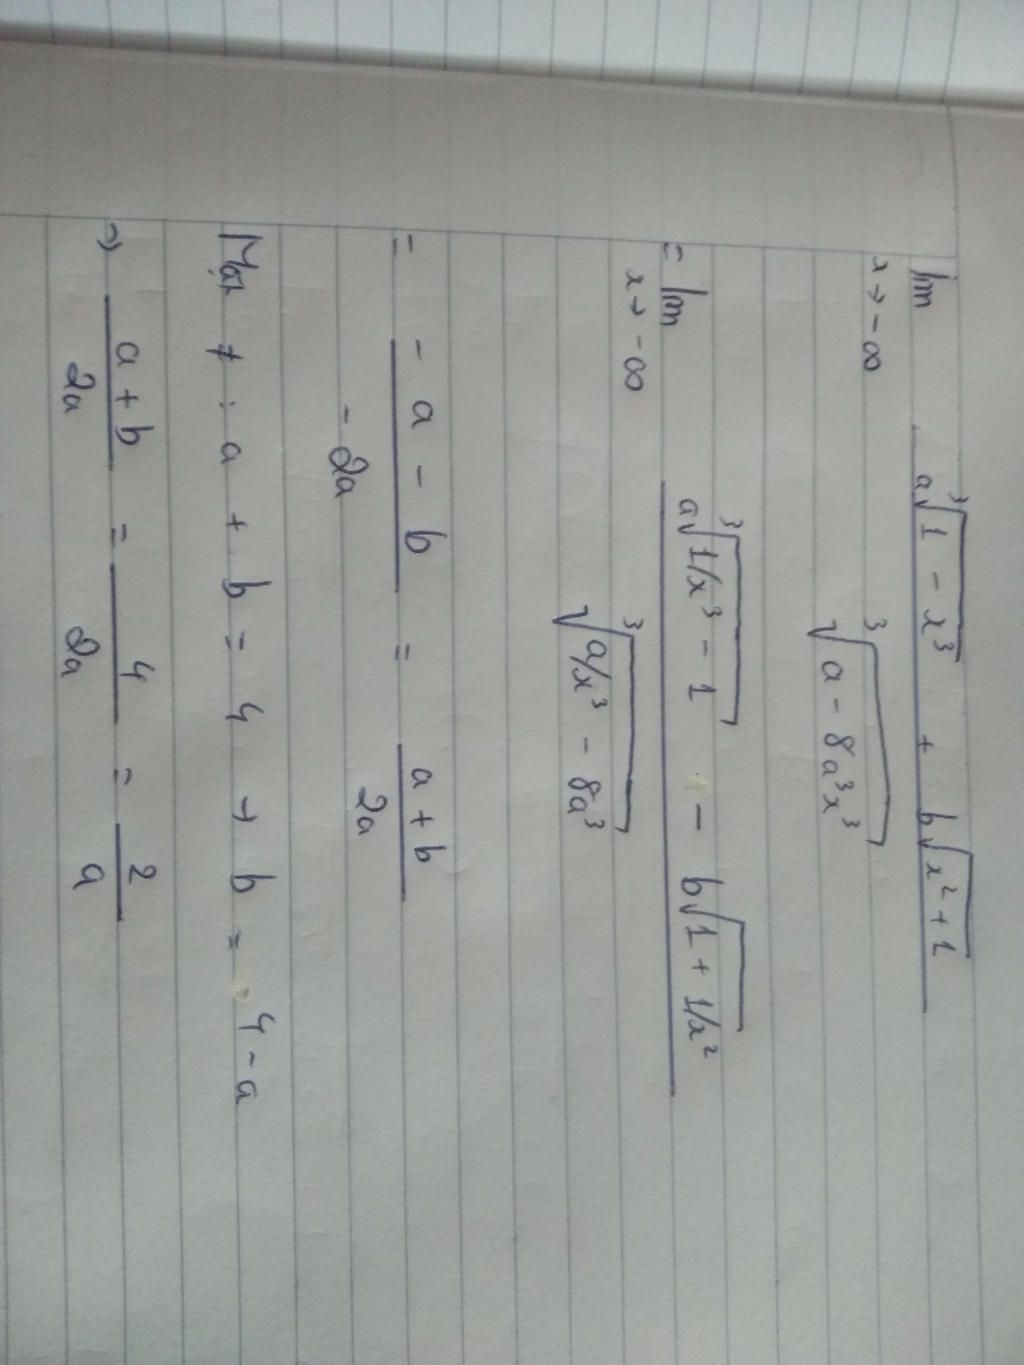 lim x→-∞ (a∛(1 - x³) + b√(x² + 1)) / ∛(a - 8a³x³)
= lim x→-∞ (a∛(1/x³ - 1) - b√(1 + 1/x²)) / ∛(a/x³ - 8a³)
= (- a - b) / (- 2a) = (a + b) / (2a)
Mặt ≠ : a + b = 4 → b = 4 - a
⇒ (a + b) / (2a) = 4 / (2a) = 2 / a